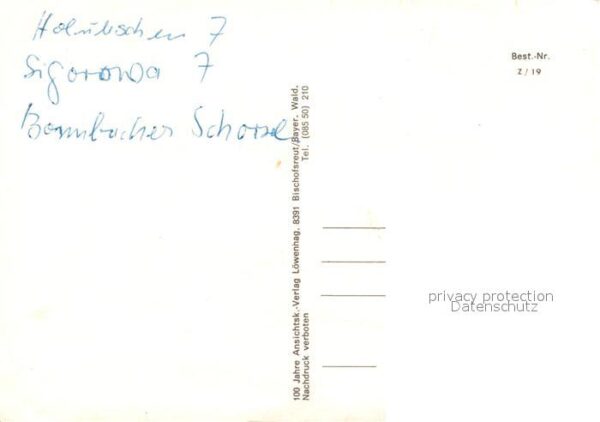 7
Sigorowa 7
Schorsch
Best.-Nr.
Z/19
100 Jahre Ansichtsk.-Verlag Löwenhag. 8391 Bischofsreut/Bayer. Wald.
Nachdruck verboten Tel. (085 50) 210
privacy protection
Datenschutz